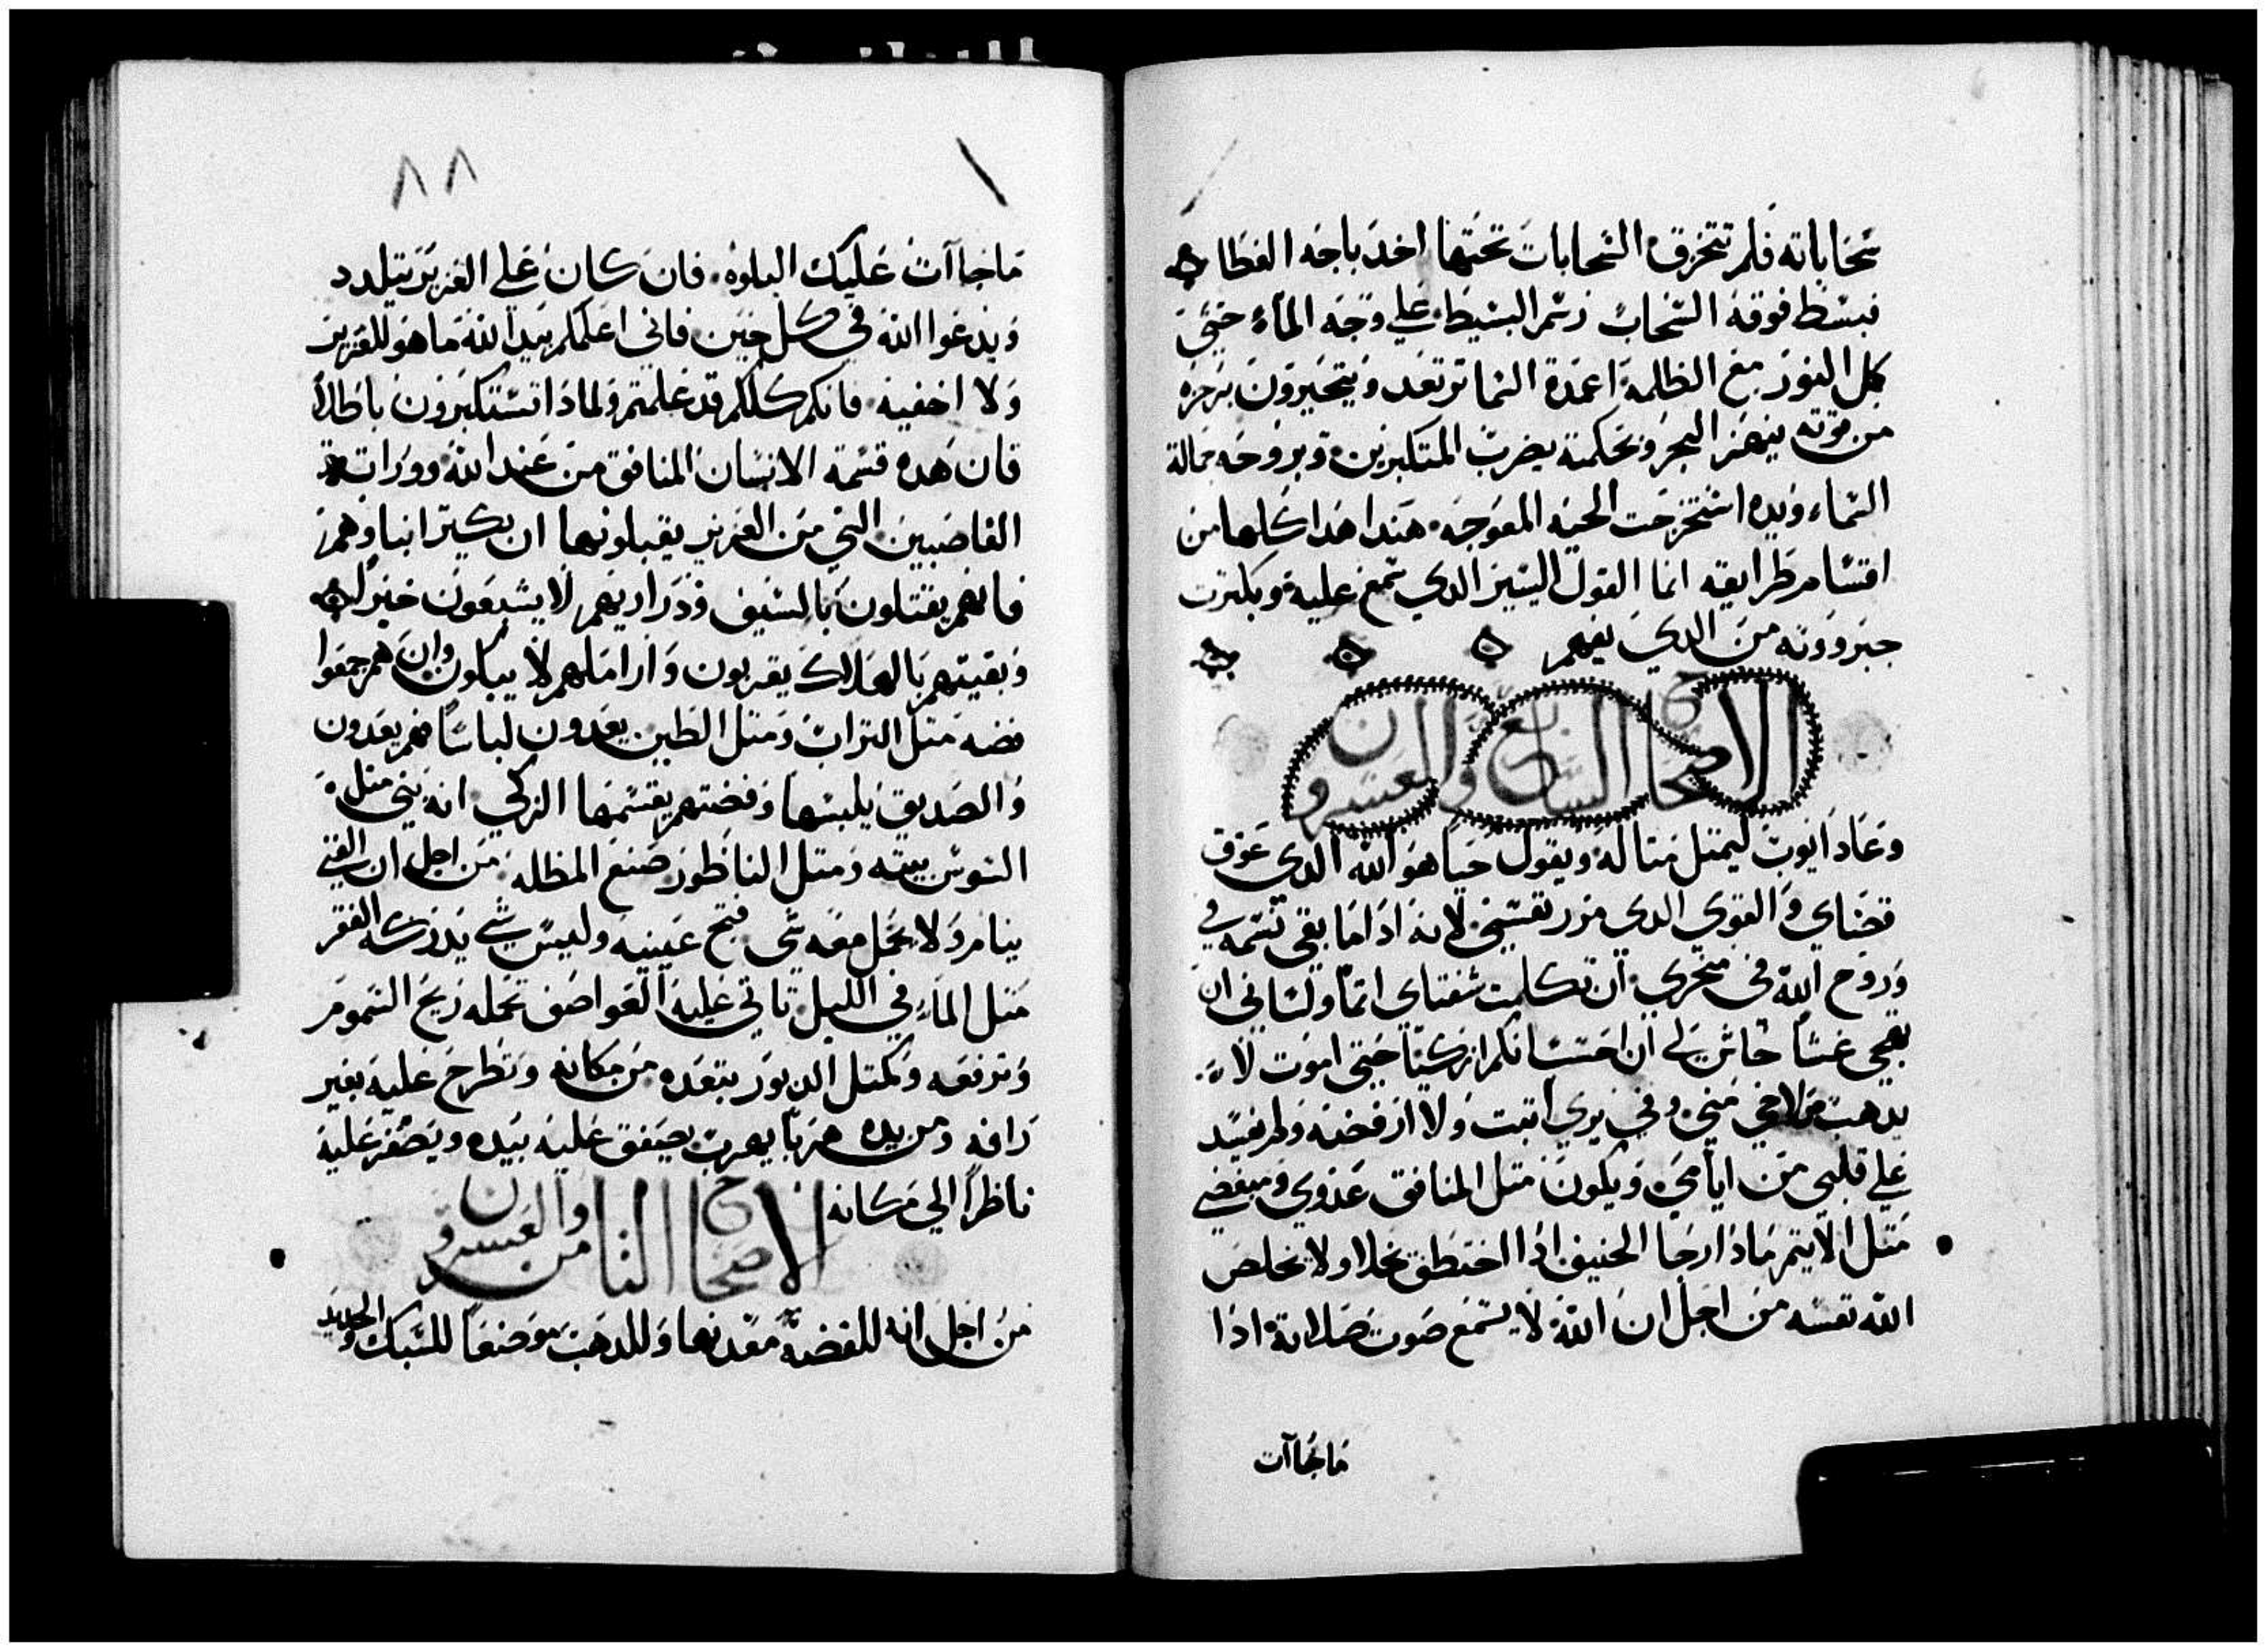 سحاباته فلم تتخرق السحابات تحتها اخد باجه الغطا
فبسط فوقه السحاب رسم البسيط علي وجه الماء حتي
كل النور مع الظلمة اعمدة السما ترتعد ويتحيرون بزجره
من قوته ينهز البحر وبحكمته يضرب المتكبرين وبروحه جمالة
السماء ويده استخرجت الحيه المعوجه هندا هدا كلها من
اقتسام طرايقه انما القول اليسير الدي سمع عليه وبكترت
جبرووته من الدي يفهم
الاصحاح السابع والعشرون
وعاد ايوب ليمتل متاله ويقول حيا هو الله الدي عوق
قضاي والقوي الدي مرر نفسي لانه ادا ما بقي نسمه في
وروح الله في منخري ان تكلمت شفتاي اتما ولساني ان
يهجي غشا حاش لي ان احتسبانكم ازكيا حتي اموت لا
يدهب مني وفي بري اتبت ولا ارفضه ولم يفسد
علي قلبي من ايامي ويكون متل المنافق عدوي ومبغضي
متل الاتيم مادا رجا الحنيف ادا اختطق بخلا ولا يخلص
الله نفسه من اجل ان الله لا يسمع صوت صلاته ادا
ماجاآت
٨٨
ماجاآت عليك البلوه فان كان علي العزيز يتلدد
ويدعوا الله في كل حين فاني اعلمكم بيد الله ما هو للعزيز
ولا اخفيه فانكم كلكم قد علمتم ولمادا تستكبرون باطلا
فان هده قسمة الانسان المنافق من عند الله ووراتة
الغاصبين التي من العزيز يقبلونها ان يكتر ابناوهم
فانهم يقتلون بالسيف ودراريهم لا يشبعون خبزا
وبقيتهم بالهلاك يقربون واراملهم لا يبكون وان هم جمعوا
فضه متل التراب ومتل الطين يعدون لباسا فهم يعدون
والصديق يلبسها وفضتهم يقسمها الزكي انه بني متل
السوس بيته ومتل الناطور صنع المظله من اجل ان الغني
ينام ولا يحمل معه شي فتح عينيه وليس شي يدركه الفقر
متل الماء في الليل تاتي عليه العواصف تحمله ريح السموم
وترفعه وكمتل الدبور يتعده من مكانه وتطرح عليه بغير
رافه ومن يده هربا يهرب يصفق عليه بيده ويصفر عليه
ناظرا الي مكانه
الاصحاح الثامن والعشرون
من اجل انه للفضه معدنها وللدهب موضعا للسبك والحديد